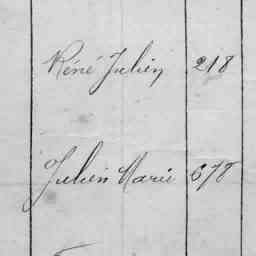 Réné Julien 218
Julien Marie 678